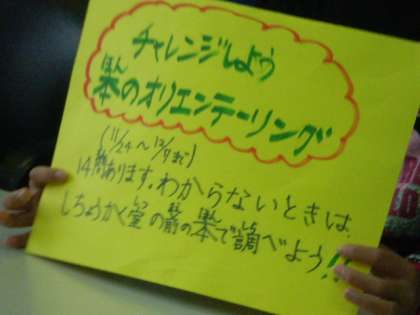 チャレンジしよう
本のオリエンテーリング
(11/24〜12/9まで)
14問あります。わからないときは、
しちょうかく室の前の本で調べよう!!